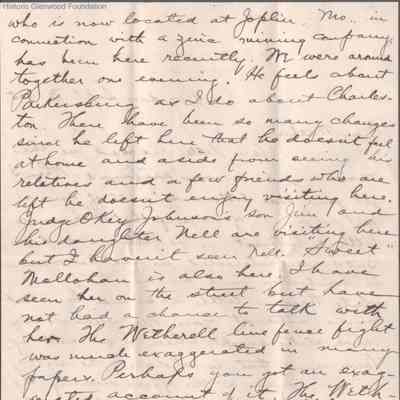 Historic Glenwood Foundation
who is now located at Joplin, Mo., in
connection with a zinc mining company,
has been here recently. We were around
together one evening. He feels about
Parkersburg as I do about Charles-
ton. There have been so many changes
since he left here that he doesn't feel
at home and aside from seeing his
relations and a few friends who are
left he doesn't enjoy visiting here.
Judge Okey Johnson's son Jim and
his daughter Nell are visiting here
but I haven't seen Nell. "Sweet"
Mollohan is also here. I have
seen her on the street but have
not had a chance to talk with
her. The Wetherell line fence fight
was much exaggerated in many
papers. Perhaps you got an exag-
gerated account of it. The Weth-